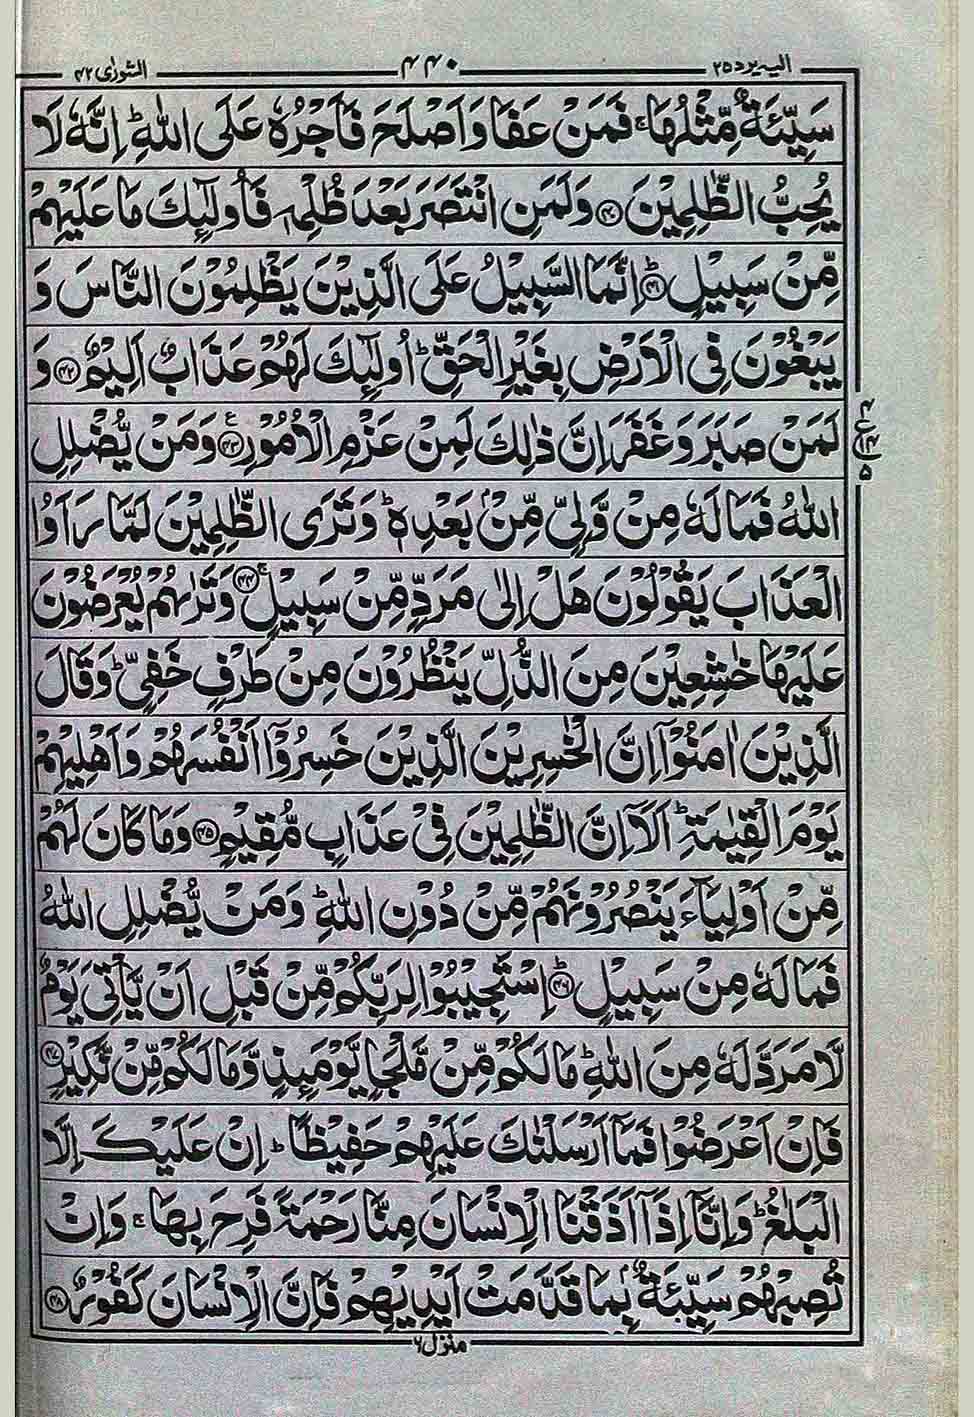 الیه یرد ۲۵ ۴۴۰ الشورٰی ۴۲
سَیِّئَةٌ مِّثْلُهَا ۚ فَمَنْ عَفَا وَاَصْلَحَ فَاَجْرُهٗ عَلَى اللّٰهِ ؕ اِنَّهٗ لَا
یُحِبُّ الظّٰلِمِیْنَ ﴿۴۰﴾ وَلَمَنِ انْتَصَرَ بَعْدَ ظُلْمِهٖ فَاُولٰٓئِكَ مَا عَلَیْهِمْ
مِّنْ سَبِیْلٍ ؕ﴿۴۱﴾ اِنَّمَا السَّبِیْلُ عَلَى الَّذِیْنَ یَظْلِمُوْنَ النَّاسَ وَ
یَبْغُوْنَ فِی الْاَرْضِ بِغَیْرِ الْحَقِّ ؕ اُولٰٓئِكَ لَهُمْ عَذَابٌ اَلِیْمٌ ﴿۴۲﴾ وَ
لَمَنْ صَبَرَ وَغَفَرَ اِنَّ ذٰلِكَ لَمِنْ عَزْمِ الْاُمُوْرِ ﴿۴۳﴾ع وَمَنْ یُّضْلِلِ
اللّٰهُ فَمَا لَهٗ مِنْ وَّلِیٍّ مِّنْۢ بَعْدِهٖ ؕ وَتَرَى الظّٰلِمِیْنَ لَمَّا رَاَوُا
الْعَذَابَ یَقُوْلُوْنَ هَلْ اِلٰى مَرَدٍّ مِّنْ سَبِیْلٍ ۚ﴿۴۴﴾ وَتَرٰىهُمْ یُعْرَضُوْنَ
عَلَیْهَا خٰشِعِیْنَ مِنَ الذُّلِّ یَنْظُرُوْنَ مِنْ طَرْفٍ خَفِیٍّ ؕ وَقَالَ
الَّذِیْنَ اٰمَنُوْۤا اِنَّ الْخٰسِرِیْنَ الَّذِیْنَ خَسِرُوْۤا اَنْفُسَهُمْ وَاَهْلِیْهِمْ
یَوْمَ الْقِیٰمَةِ ؕ اَلَاۤ اِنَّ الظّٰلِمِیْنَ فِیْ عَذَابٍ مُّقِیْمٍ ﴿۴۵﴾ وَمَا كَانَ لَهُمْ
مِّنْ اَوْلِیَآءَ یَنْصُرُوْنَهُمْ مِّنْ دُوْنِ اللّٰهِ ؕ وَمَنْ یُّضْلِلِ اللّٰهُ
فَمَا لَهٗ مِنْ سَبِیْلٍ ؕ﴿۴۶﴾ اِسْتَجِیْبُوْا لِرَبِّكُمْ مِّنْ قَبْلِ اَنْ یَّاْتِیَ یَوْمٌ
لَّا مَرَدَّ لَهٗ مِنَ اللّٰهِ ؕ مَا لَكُمْ مِّنْ مَّلْجَاٍ یَّوْمَىِٕذٍ وَّمَا لَكُمْ مِّنْ نَّكِیْرٍ ﴿۴۷﴾
فَاِنْ اَعْرَضُوْا فَمَاۤ اَرْسَلْنٰكَ عَلَیْهِمْ حَفِیْظًا ؕ اِنْ عَلَیْكَ اِلَّا
الْبَلٰغُ ؕ وَاِنَّاۤ اِذَاۤ اَذَقْنَا الْاِنْسَانَ مِنَّا رَحْمَةً فَرِحَ بِهَا ۚ وَاِنْ
تُصِبْهُمْ سَیِّئَةٌۢ بِمَا قَدَّمَتْ اَیْدِیْهِمْ فَاِنَّ الْاِنْسَانَ كَفُوْرٌ ﴿۴۸﴾
منزل ۶